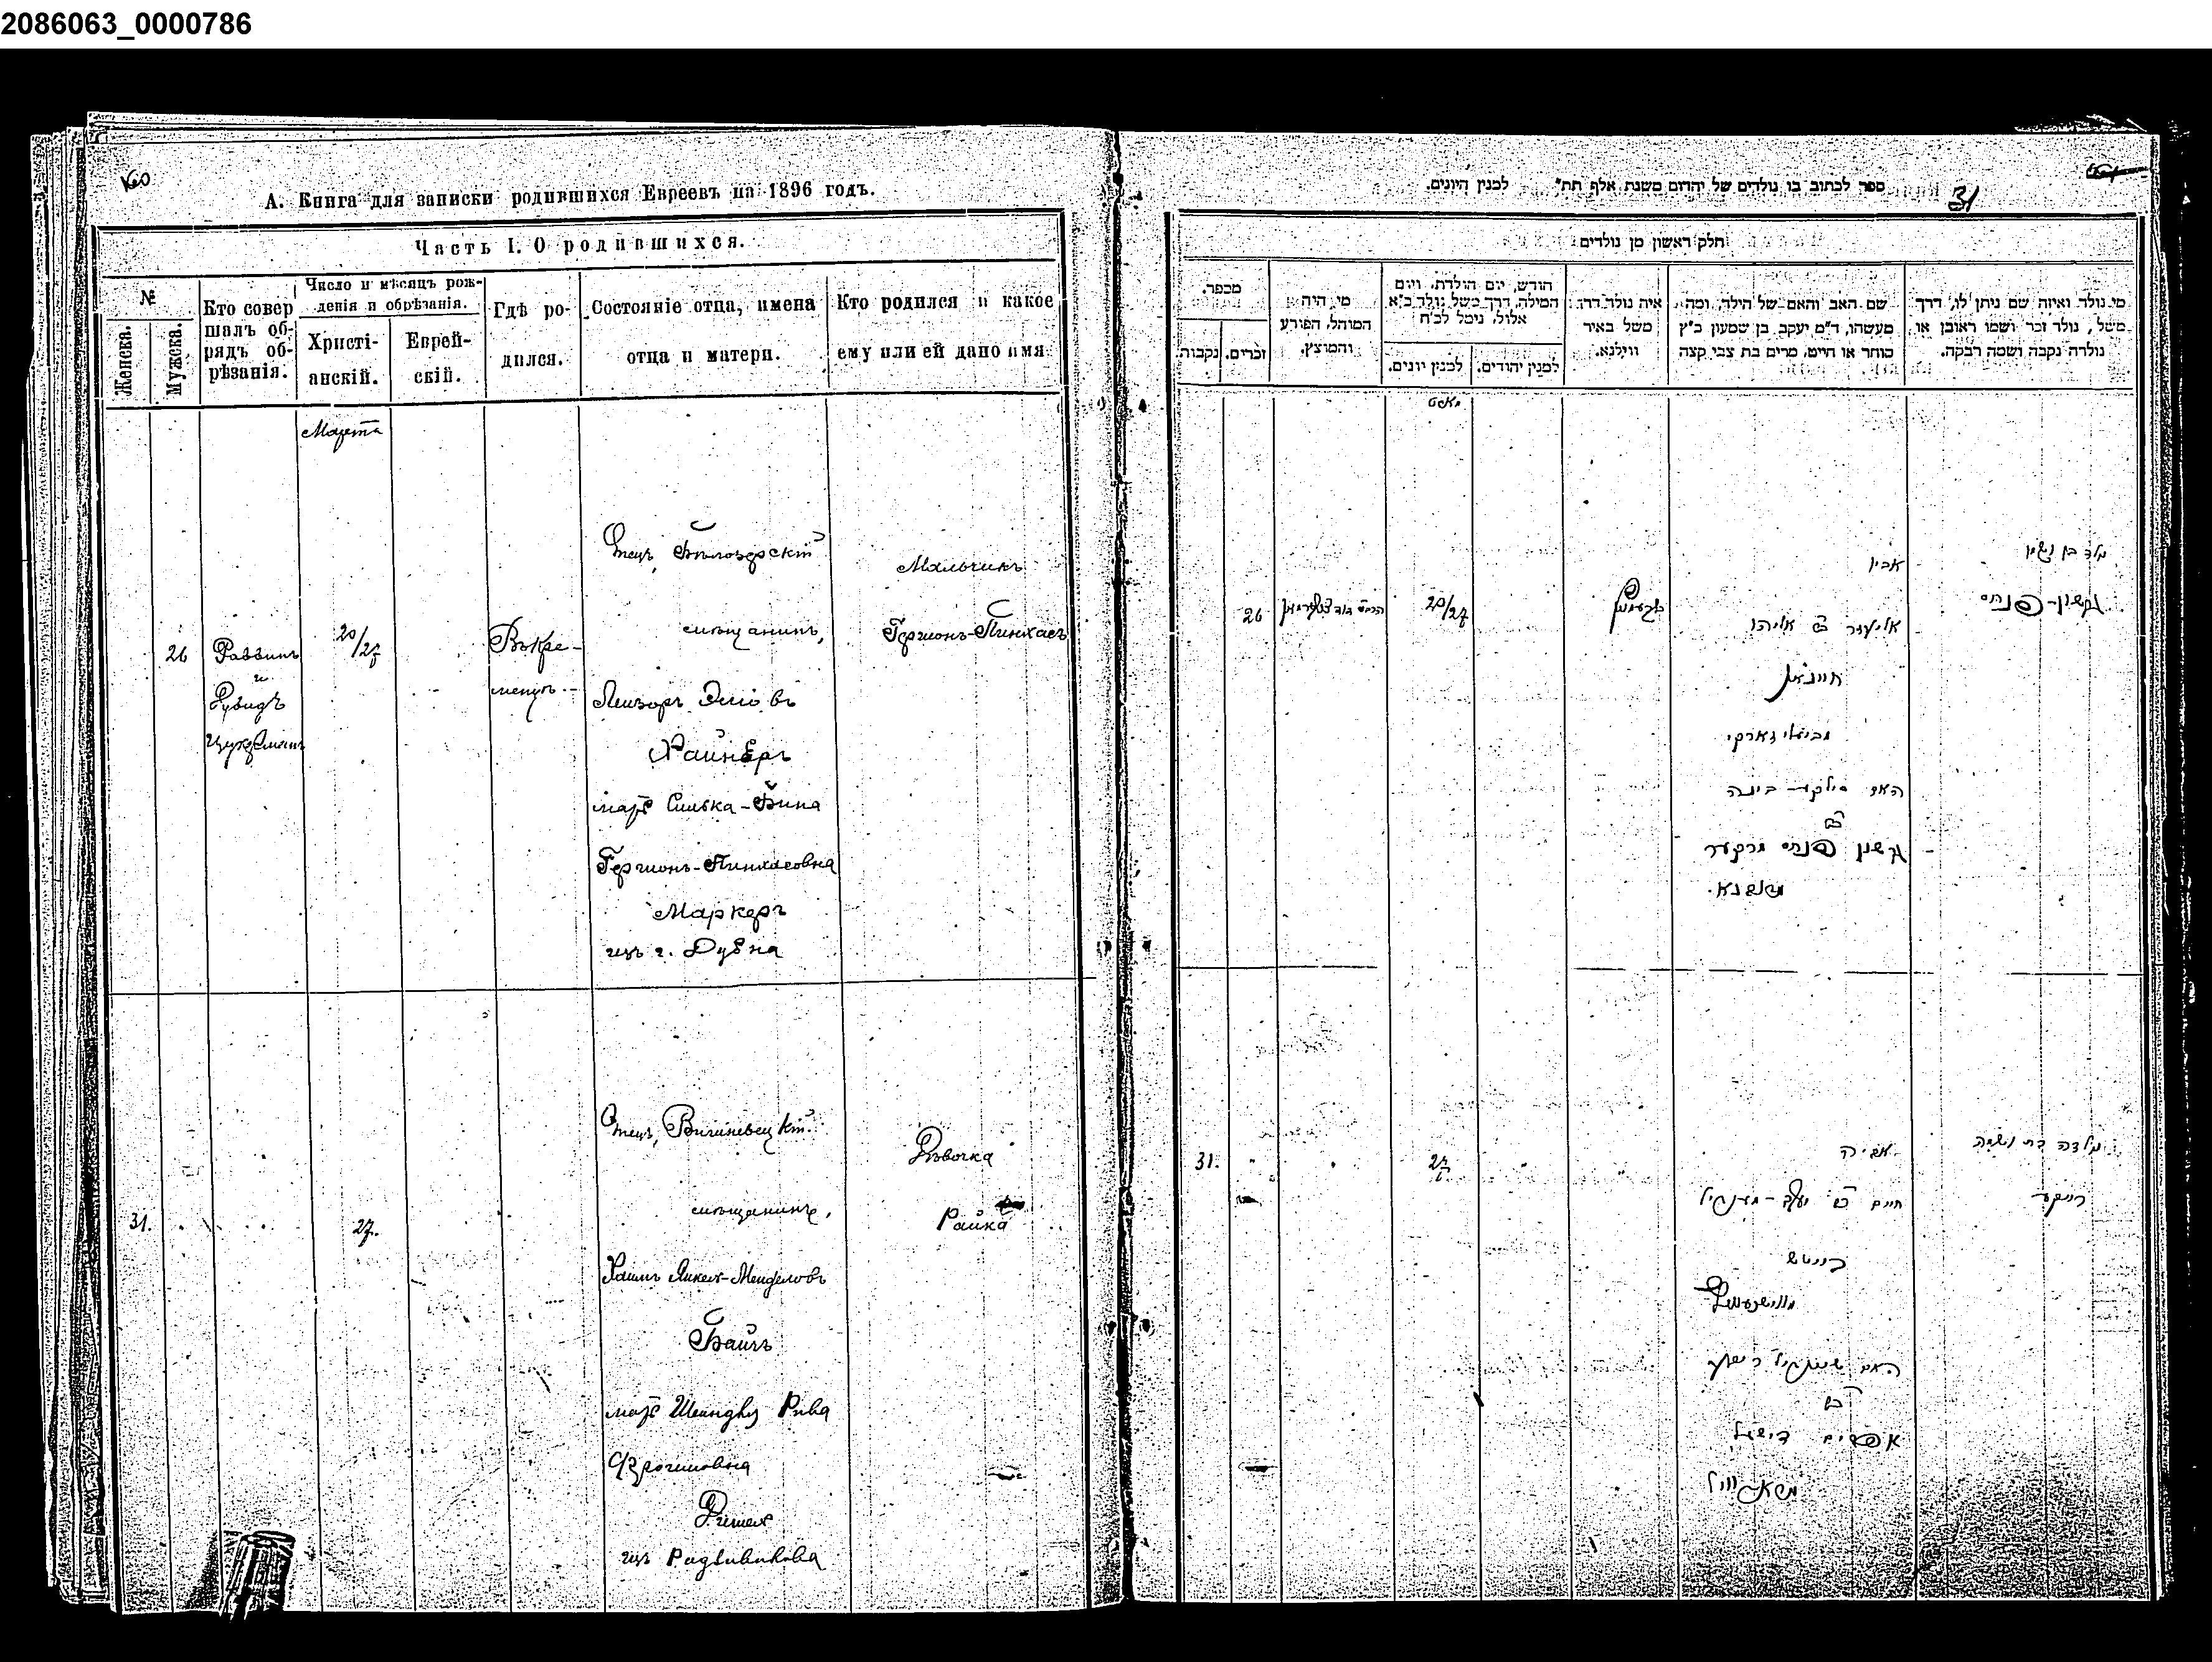 2086063_0000786
А. Книга для записки родившихся Евреевъ на 1896 годъ.
Часть I. О родившихся.
№
Женска.
Мужска.
Кто совер
шалъ об-
рядъ об-
рѣзанія.
Число и мѣсяцъ рож-
денія и обрѣзанія.
Христі-
анскій.
Еврей-
скій.
Гдѣ ро-
дился.
Состояніе отца, имена
отца и матери.
Кто родился и какое
ему или ей дано имя
Марта
26
Раввинъ
и
20/27
Въ Кре-
менцѣ
Отецъ, Бѣлозерскій
мѣщанинъ,
Лейзоръ Эліовъ
Хайнеръ
мать Силька-Бина
Гершонъ-Пинхасовна
Маркеръ
изъ г. Дубна
Мальчикъ
Гершонъ-Пинхасъ
31.
27.
Отецъ, Вишневецкій
мѣщанинъ,
Хаимъ Янкель-Менделовъ
Байчъ
мать Шейндля Рива
Фишель
изъ Радзивилова
Дѣвочка
Райка
ספר לכתוב בו נולדים של יהדום משנת אלף תת״ לכנין היונים.
31
חלק ראשון מן נולדים
מכפר.
נקבות.
זכרים.
מי היה
המוהל, הפורע
והמוצץ.
חודש, יום הולדת, ויום
המילה, דרך משל נולד כ״א
אלול, נימל לכ״ח
לכנין יונים.
למנין יהודים.
איה נולד דרך
משל באיר
ווילנא.
שם האב והאם של הילד, ומה
מעשהו, ד״מ יעקב, בן שמעון כ״ץ
סוחר או חייט, מרים בת צבי קצה
מי נולד ואיזה שם ניתן לו, דרך
משל, נולד זכר ושמו ראובן או
נולדה נקבה ושמה רבקה.
26
20/27
אביו
אליעזר ב״ר אליהו
האם סילקא-בינה
גרשון פנחס מרקער
נולד בן ושמו
גרשון-פנחס
31.
27
אביה
נולדה בת ושמה
רייקע